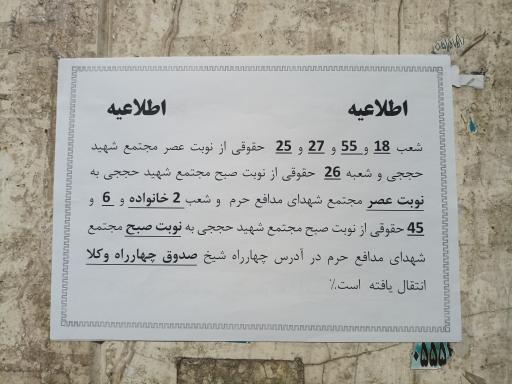 اطلاعیه اطلاعیه
شعب 18 و 55 و 27 و 25 حقوقی از نوبت عصر مجتمع شهید
حججی و شعبه 26 حقوقی از نوبت صبح مجتمع شهید حججی به
نوبت عصر مجتمع شهدای مدافع حرم و شعب 2 خانواده و 6 و
45 حقوقی از نوبت صبح مجتمع شهید حججی به نوبت صبح مجتمع
شهدای مدافع حرم در آدرس چهارراه شیخ صدوق چهارراه وکلا
انتقال یافته است.٪